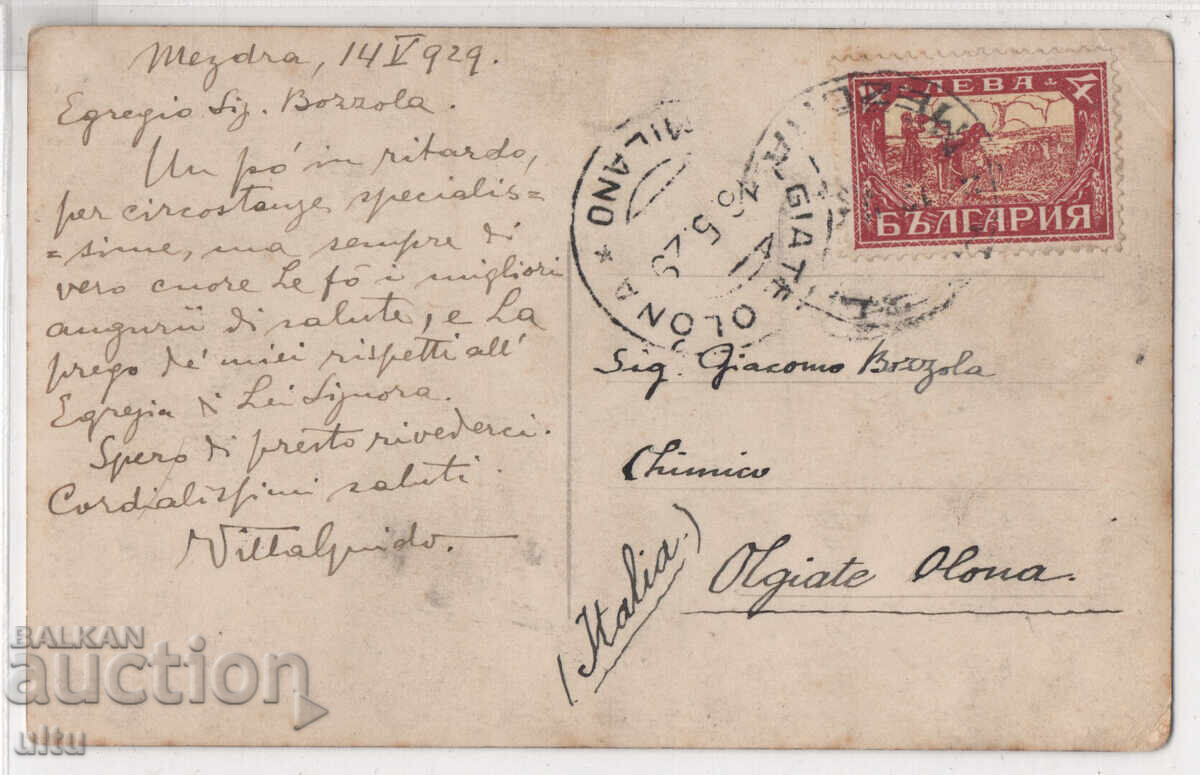 Mezdra, 14 V 929.
Egregio Sig. Bozzola.
Un pó in ritardo,
per circostanze specialis=
=sime, ma sempre di
vero cuore Le fó i migliori
augurii di salute, e La
prego de' miei rispetti all'
Egregia di Lei Signora.
Spero di presto rivederci.
Cordialissimi saluti
VittaGuido.
4 ЛЕВА 4
БЪЛГАРИЯ
OLGIATE OLONA * MILANO *
5.29
Sig. Giacomo Bozzola
Chimico
Olgiate Olona.
(Italia)
BALKAN
auction
ultu